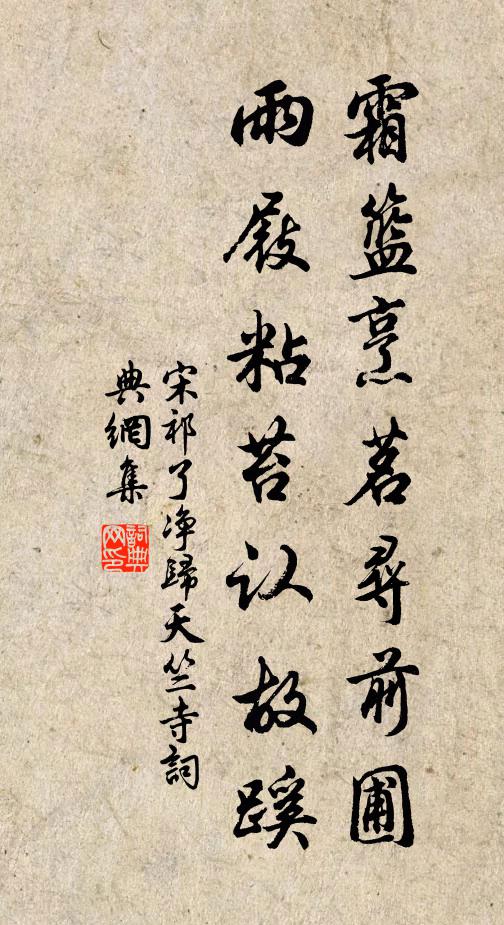 霜籃烹茗尋前圃
雨屐粘苔认故蹊
宋祁了净歸天竺寺詞
典網集
詞典
网印